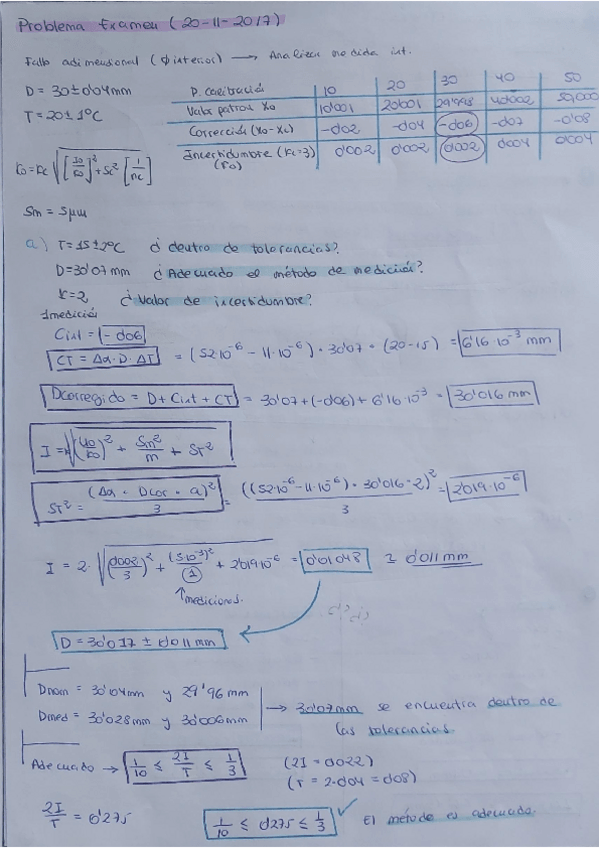 Problema Examen (20-11-2017)
Fallo adimensional (ϕ interior) → Analizar medida int.
D = 30 ± 0'04 mm
T = 20 ± 1ºC
P. calibración 10 20 30 40 50
Valor patrón Xo 10'001 20'001 29'998 40'002 50'000
Corrección (Xo - Xc) -0'02 -0'04 -0'06 -0'07 -0'08
Incertidumbre (Kc=3) (Io) 0'002 0'002 0'002 0'004 0'004
Sm = 5 μm
a) T = 15 ± 2ºC ¿ dentro de tolerancias?
D = 30'07 mm ¿ Adecuado el método de medición?
K = 2 ¿ Valor de incertidumbre?
1 medición
Cint = -0'06
CT = Δα · D · ΔT = (52·10^-6 - 11·10^-6) · 30'07 · (20-15) = 6'16·10^-3 mm
Dcorregido = D + Cint + CT = 30'07 + (-0'06) + 6'16·10^-3 = 30'016 mm
I = K√((Uo/Ko)² + Sm²/m + ST²)
ST² = (Δα · Dcor · a)²/3 = ((52·10^-6 - 11·10^-6) · 30'016 · 2)²/3 = 2'019·10^-6
I = 2·√((0'002/3)² + (5·10^-3)²/1 + 2'019·10^-6 = 0'01048 ≃ 0'011 mm
↑ mediciones.
D = 30'017 ± 0'011 mm
Dnom = 30'04 mm y 29'96 mm
Dmed = 30'028 mm y 30'006 mm → 30'07 mm se encuentra dentro de las tolerancias.
Adecuado → 1/10 ≤ 2I/T ≤ 1/3 (2I = 0'022)
(T = 2·0'04 = 0'08)
2I/T = 0'275 1/10 ≤ 0'275 ≤ 1/3 ✓ El método es adecuado.